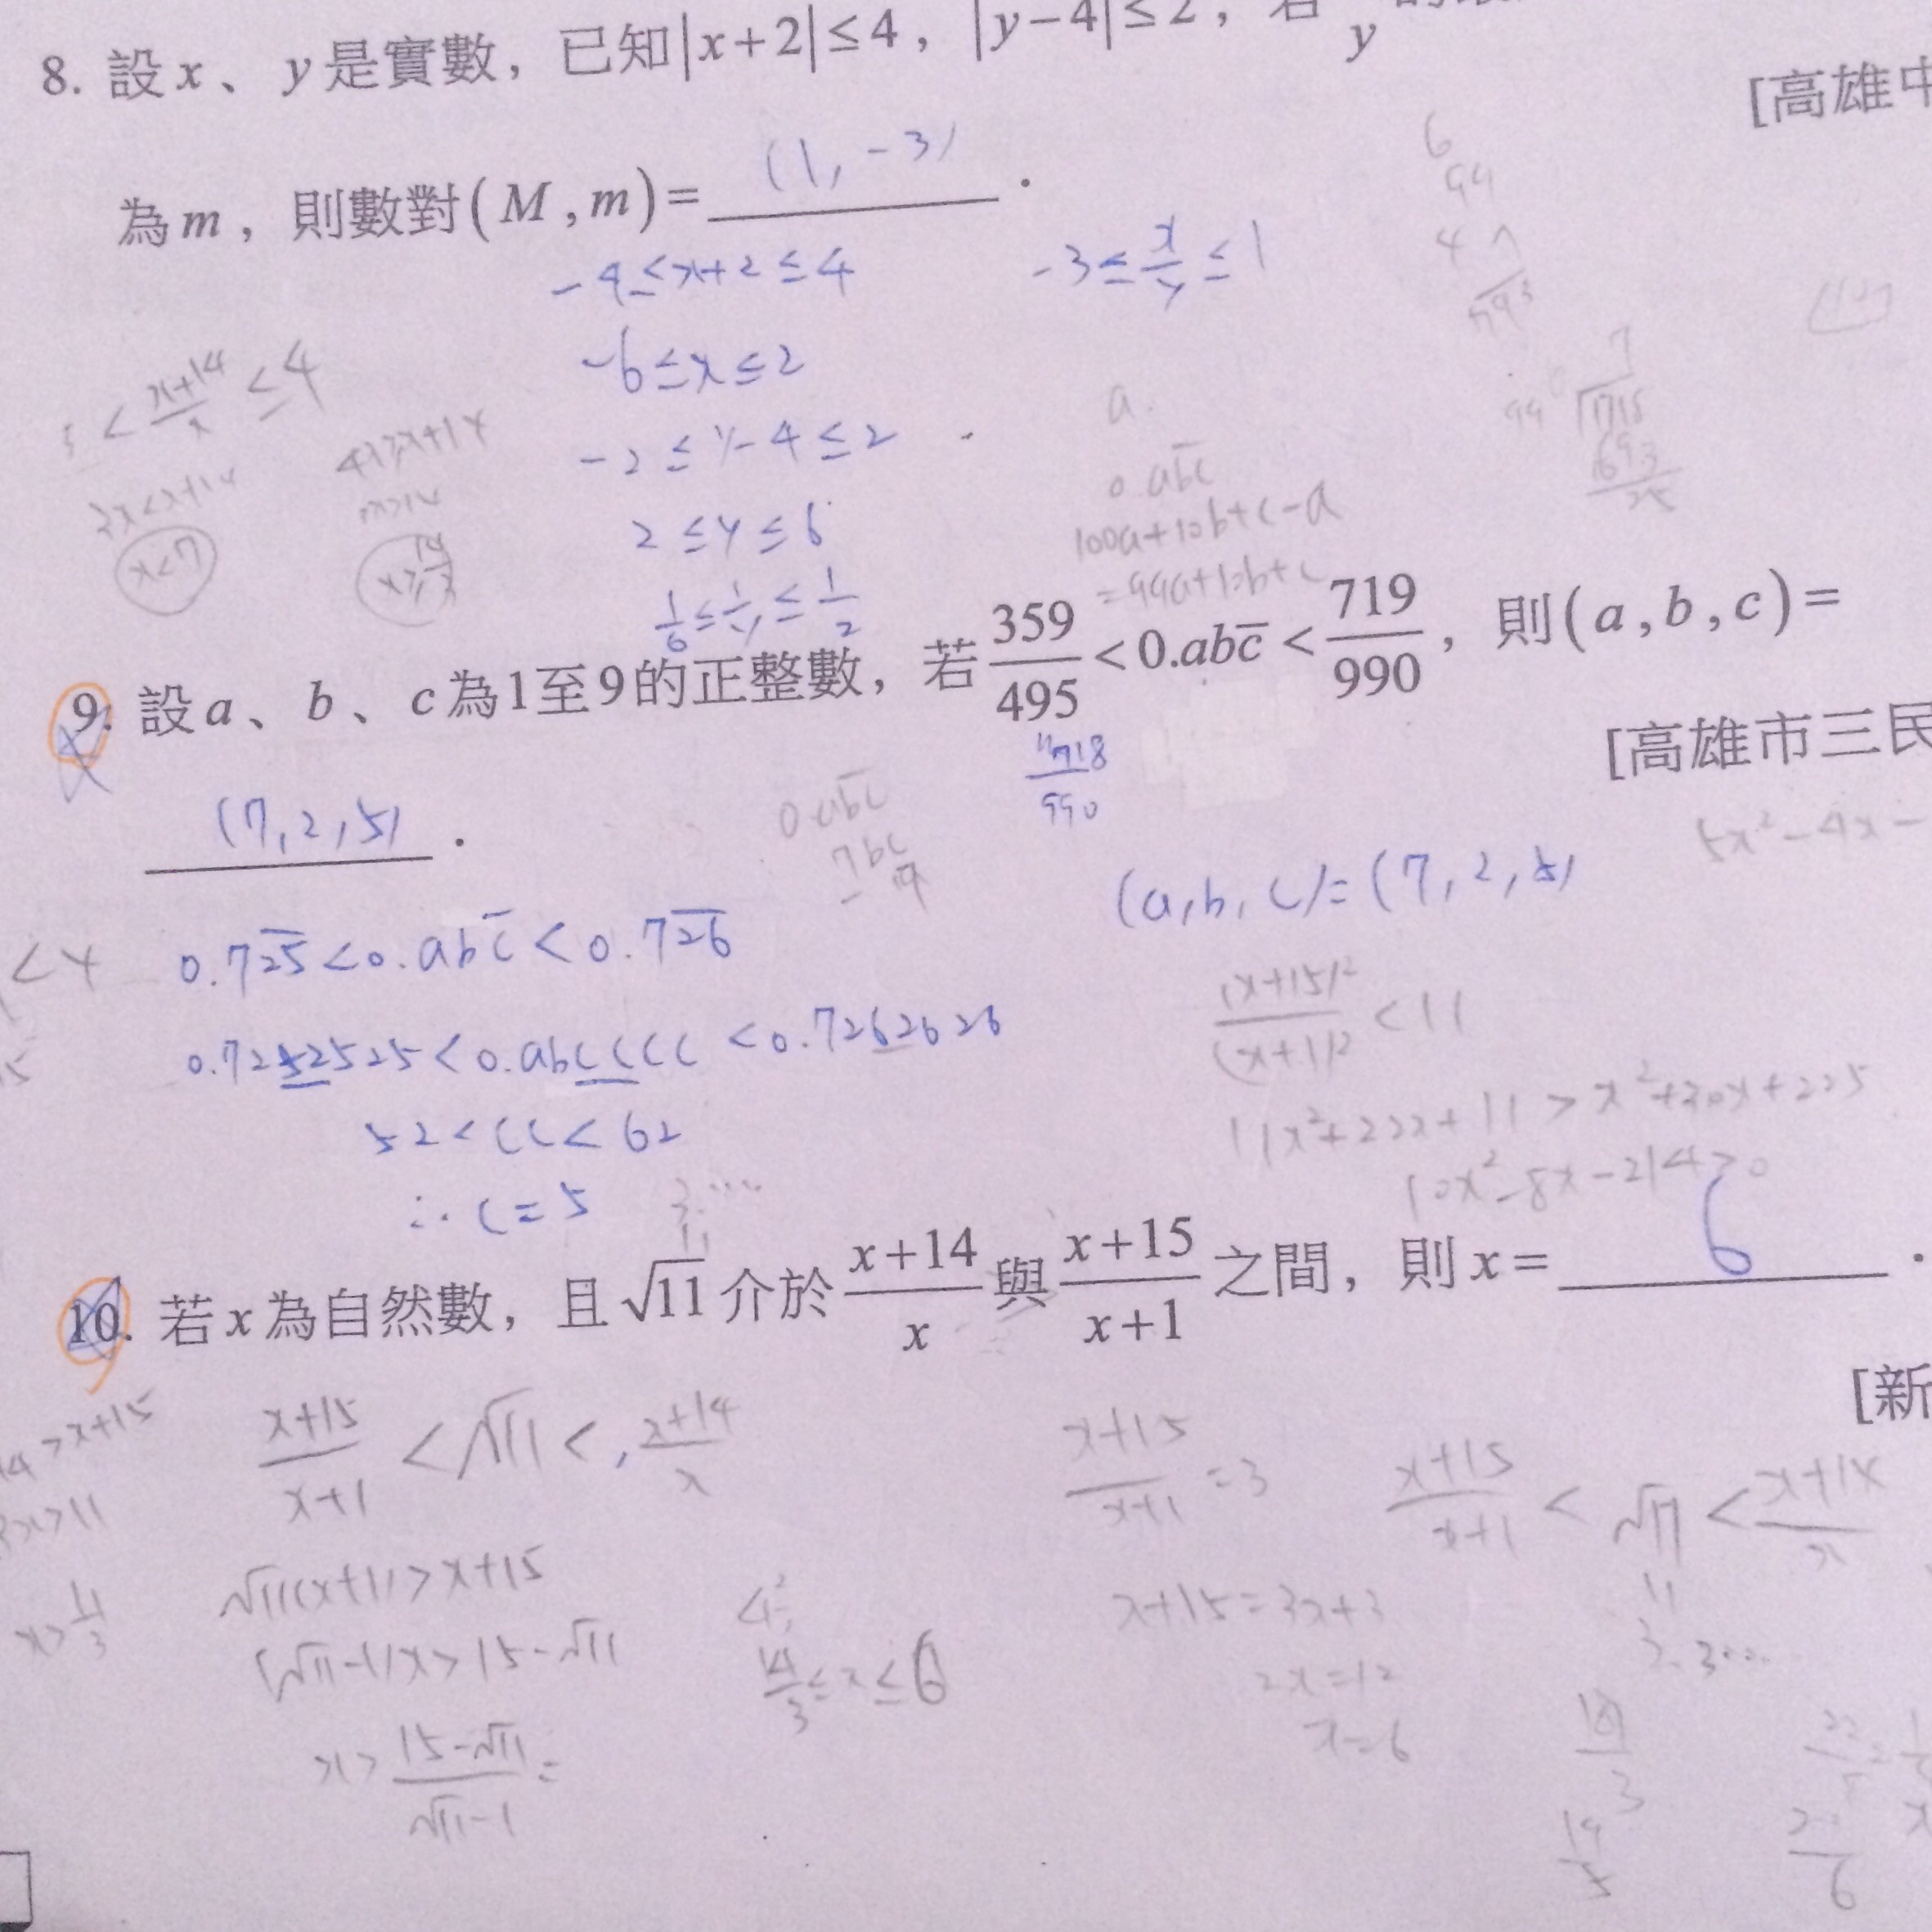 8. 設x、y是實數,已知|x+2|≤4,|y-4|≤2,若 y
[高雄中
為m,則數對(M,m)= (1,-3) .
-4≤x+2≤4
-3≤x/y≤1
-6≤x≤2
-2≤y-4≤2
2≤y≤6
1/6≤1/y≤1/2
<(x+14)/x≤4
x<7
a.
0.abc̄
100a+10b+c-a
=99a+10b+c
9. 設a、b、c為1至9的正整數,若359/495<0.abc̄<719/990,則(a,b,c)=
718/990
[高雄市三民
(7,2,5) .
0.abc̄
7bc
5x²-4x-
(a,b,c)=(7,2,5)
0.7\overline{25}<0.abc̄<0.7\overline{26}
<4
0.7252525<0.abcccc<0.7262626
52<cc<62
∴c=5
(x+15)²/(x+1)²<11
11x²+22x+11>x²+30x+225
10x²-8x-214>0
10. 若x為自然數,且√11介於(x+14)/x與(x+15)/(x+1)之間,則x= 6 .
[新
>x+15
x>11/3
(x+15)/(x+1)<√11<(x+14)/x
√11(x+1)>x+15
(√11-1)x>15-√11
x>(15-√11)/(√11-1)=
14/3≤x≤6
(x+15)/(x+1)=3
x+15=3x+3
2x=12
x=6
(x+15)/(x+1)<√11<(x+14)/x
11
3.3...